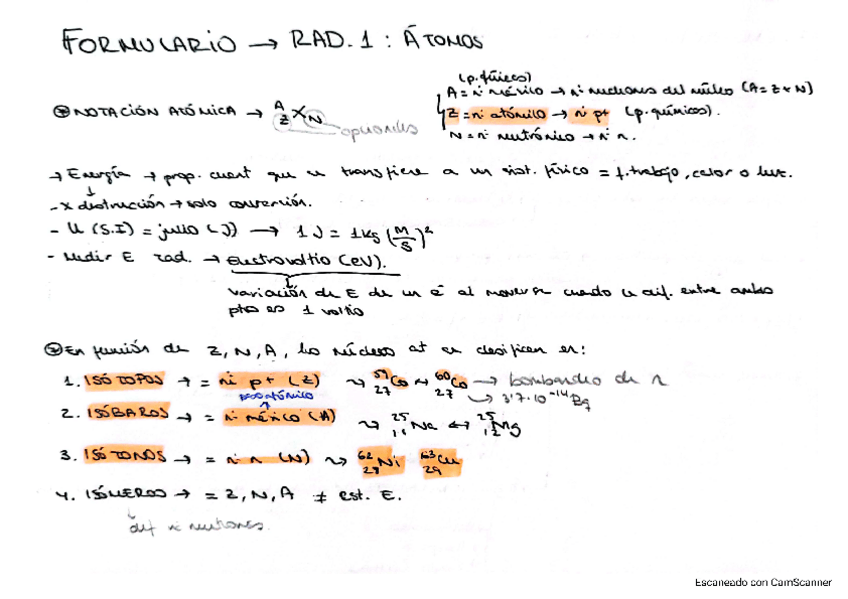 FORMULARIO → RAD. 1 : ÁTOMOS
(p. físicos)
A = nº másico → nº nucleones del núcleo (A = Z + N)
* NOTACIÓN ATÓMICA → A Z X N
opcionales
Z = nº atómico → nº p+ (p. químicos).
N = nº neutrónico → nº n.
→ Energía → prop. cuant que se transfiere a un sist. físico = f. trabajo, calor o luz.
- x destrucción → solo conversión.
- U (S.I) = julio (J) → 1 J = 1 kg (M/S)²
- Medir E rad. → electrovoltio (eV).
variación de E de un e⁻ al moverse cuando la dif. entre ambos
ptos es 1 voltio
* En función de Z, N, A, los núcleos at se clasifican en:
1. ISÓTOPOS → = nº p+ (Z) ⁵⁹₂₇Co ↔ ⁶⁰₂₇Co → bombardeo de n
→ 3'7·10⁻¹⁴ Bq
2. ISÓBAROS → = nº másico (A) ²⁵₁₁Na ↔ ²⁵₁₂Mg
3. ISÓTONOS → = nº n (N) ⁶²₂₈Ni ⁶³₂₉Cu
4. ISÓMEROS → = Z, N, A ≠ est. E.
dif nº neutrones.
Escaneado con CamScanner